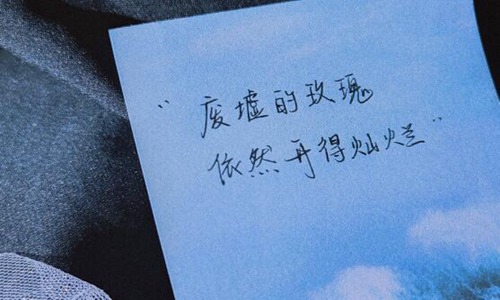 "废墟的玫瑰
依然再得灿烂"